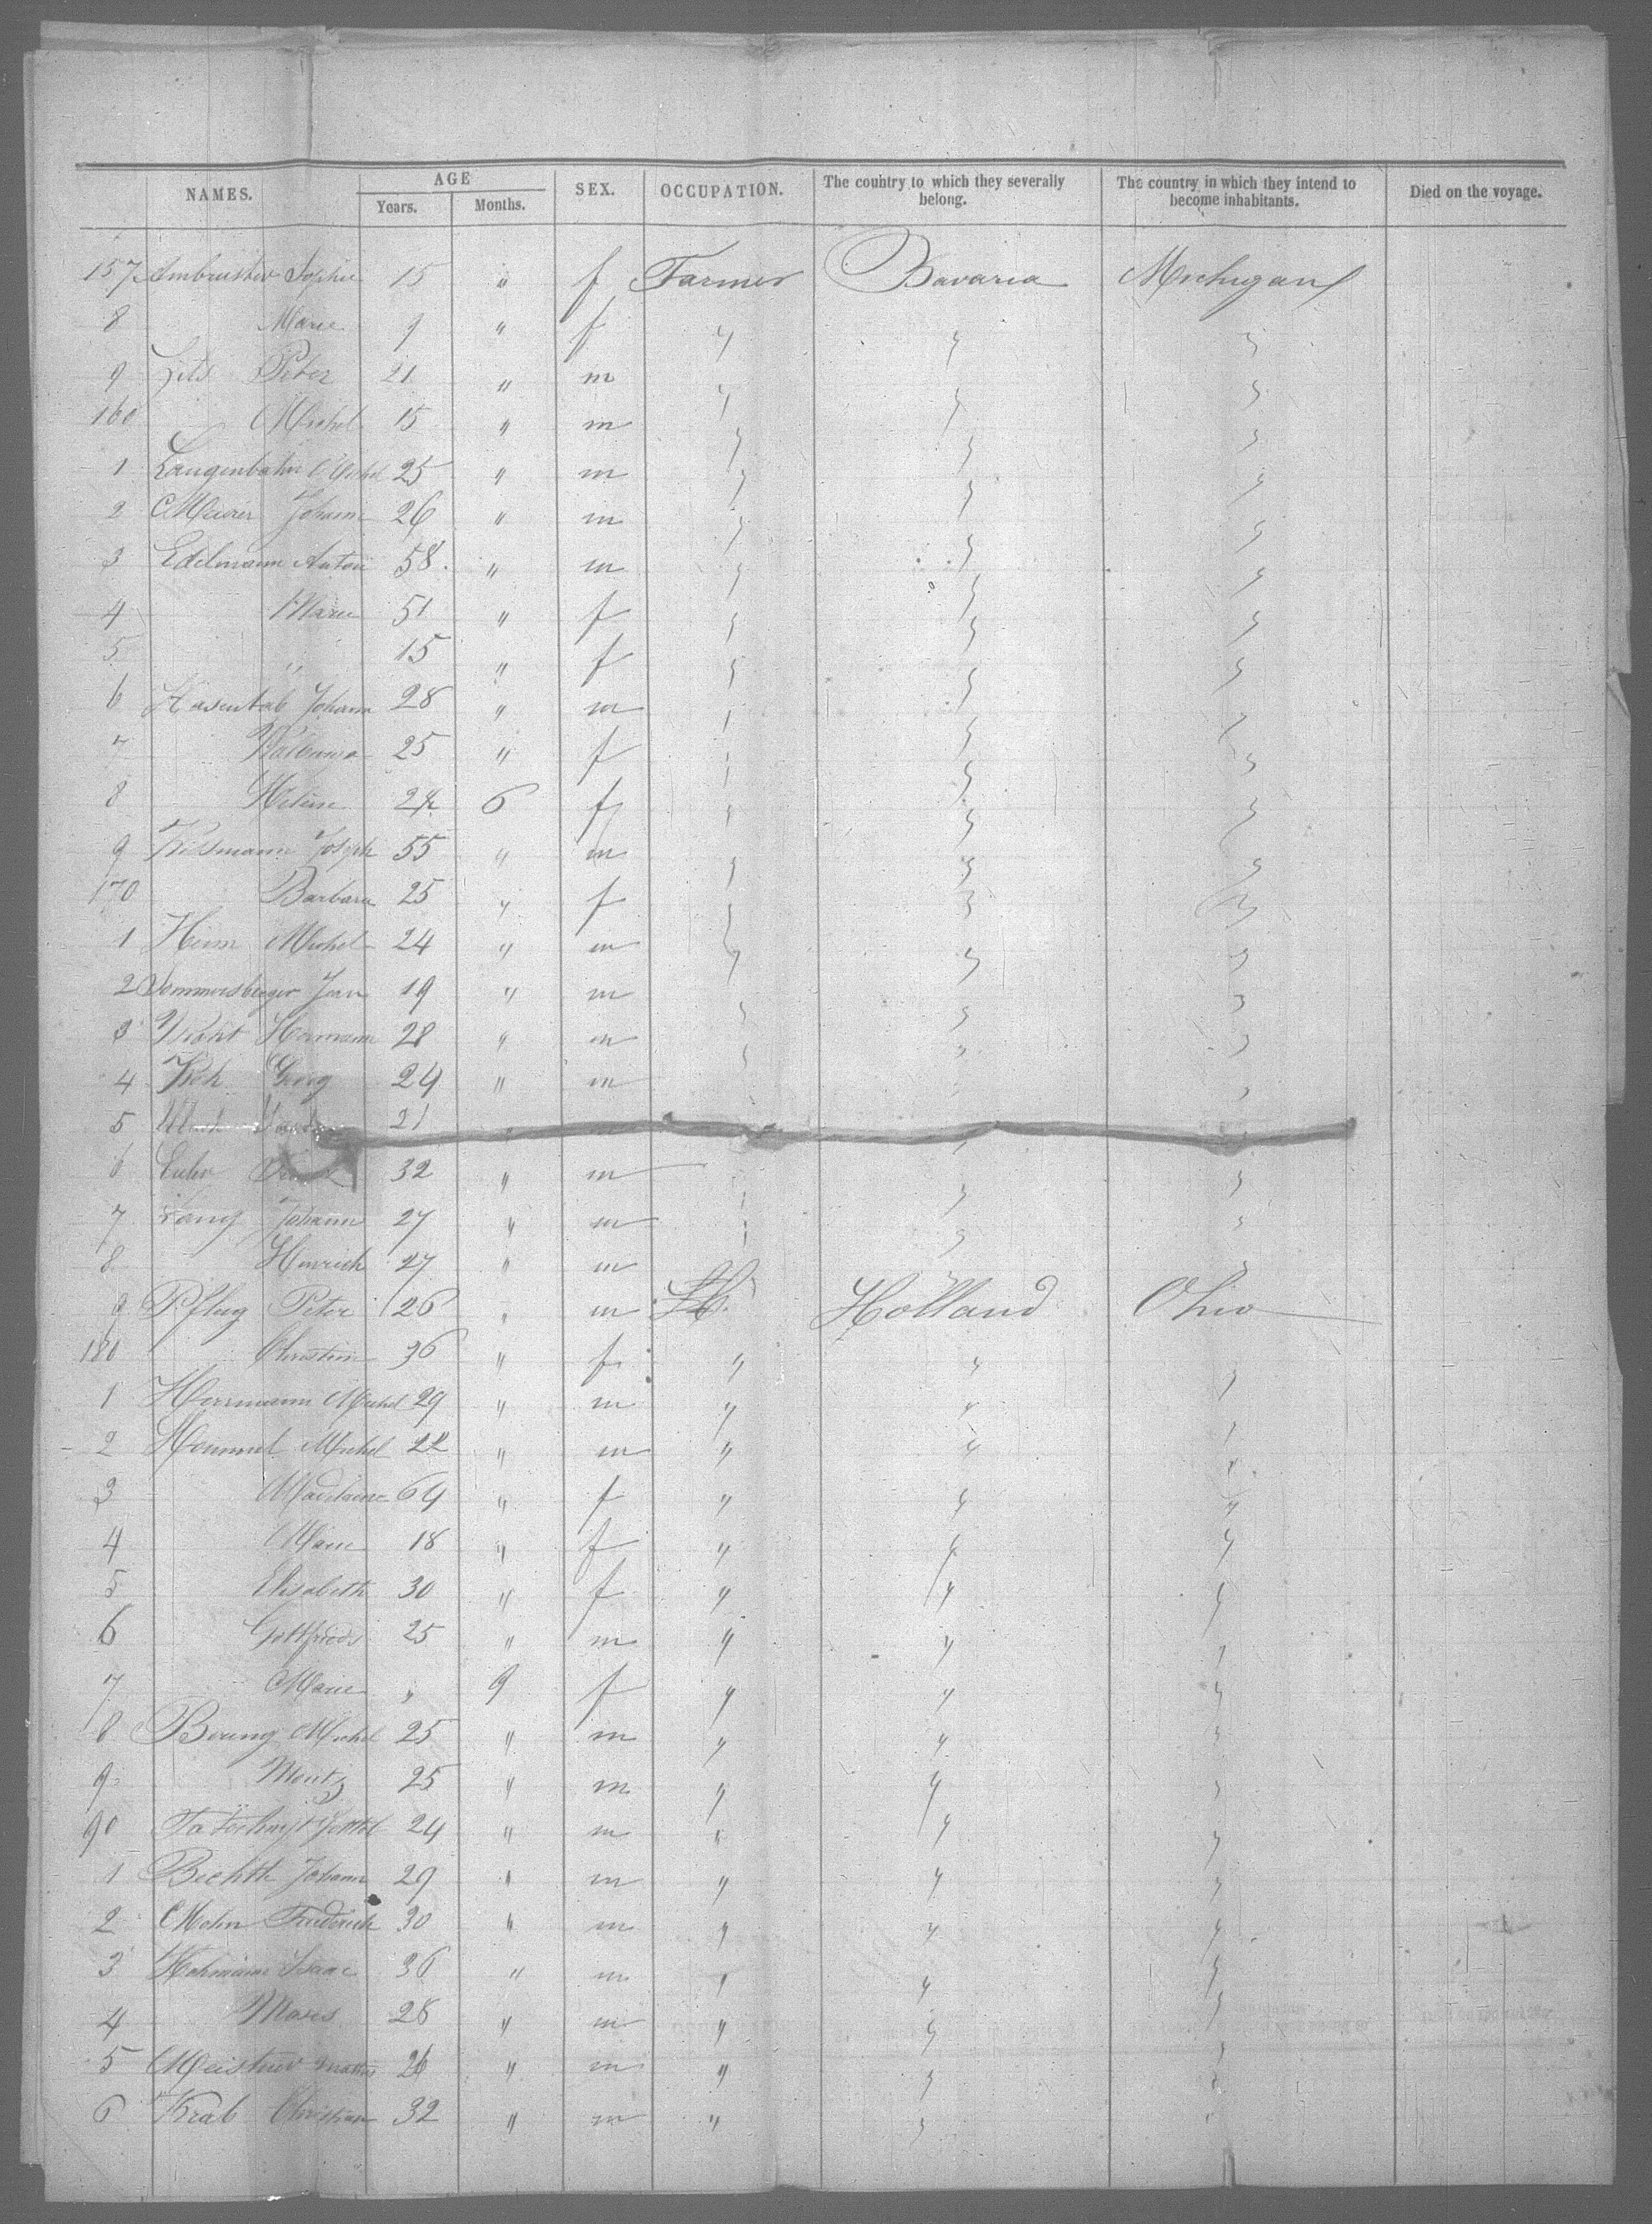 NAMES. AGE Years. Months. SEX. OCCUPATION. The country to which they severally belong. The country in which they intend to become inhabitants. Died on the voyage.
157 Ambruster Sophie 15 " f Farmer Bavaria Michigan
8 Marie 9 " f " " "
9 Peter 21 " m " " "
160 Michel 15 " m " " "
1 Langenbahn Michel 25 " m " " "
2 Meirer Johann 26 " m " " "
3 Edelmann Anton 58 " m " " "
4 Marie 51 " f " " "
5 " 15 " f " " "
6 Hasentab Johann 28 " m " " "
7 25 " f " " "
8 Helene 24 6 f " " "
9 Joseph 55 " m " " "
170 Barbara 25 " f " " "
1 Heim Michel 24 " m " " "
2 Sommersberger Jean 19 " m " " "
3 Hermann 28 " m " " "
4 Koh Georg 24 " m " "
5 21
6 Euler 32 " m " " "
7 Lang Johann 27 " m " " "
8 Heinrich 27 " m "
9 Pflug Peter 26 " m Holland Ohio
180 Christein 36 " f " "
1 Herrmann Michel 29 " m " " "
2 Hommel Michel 22 " m " " "
3 Madelaine 64 " f " " "
4 Marie 18 " f " " "
5 Elisabeth 30 " f " " "
6 Gottfried 25 " m " " "
7 Marie " 9 f " " "
8 Boung Michel 25 " m " " "
9 Moritz 25 " m " " "
90 24 " m " " "
1 Bechth Johann 29 " m " " "
2 Mohn Friederich 30 " m " " "
3 Hohmann Isaac 36 " m " " "
4 Moses 28 " m " " "
5 Meistner 26 " m " " "
6 Krab Christian 32 " m " " "